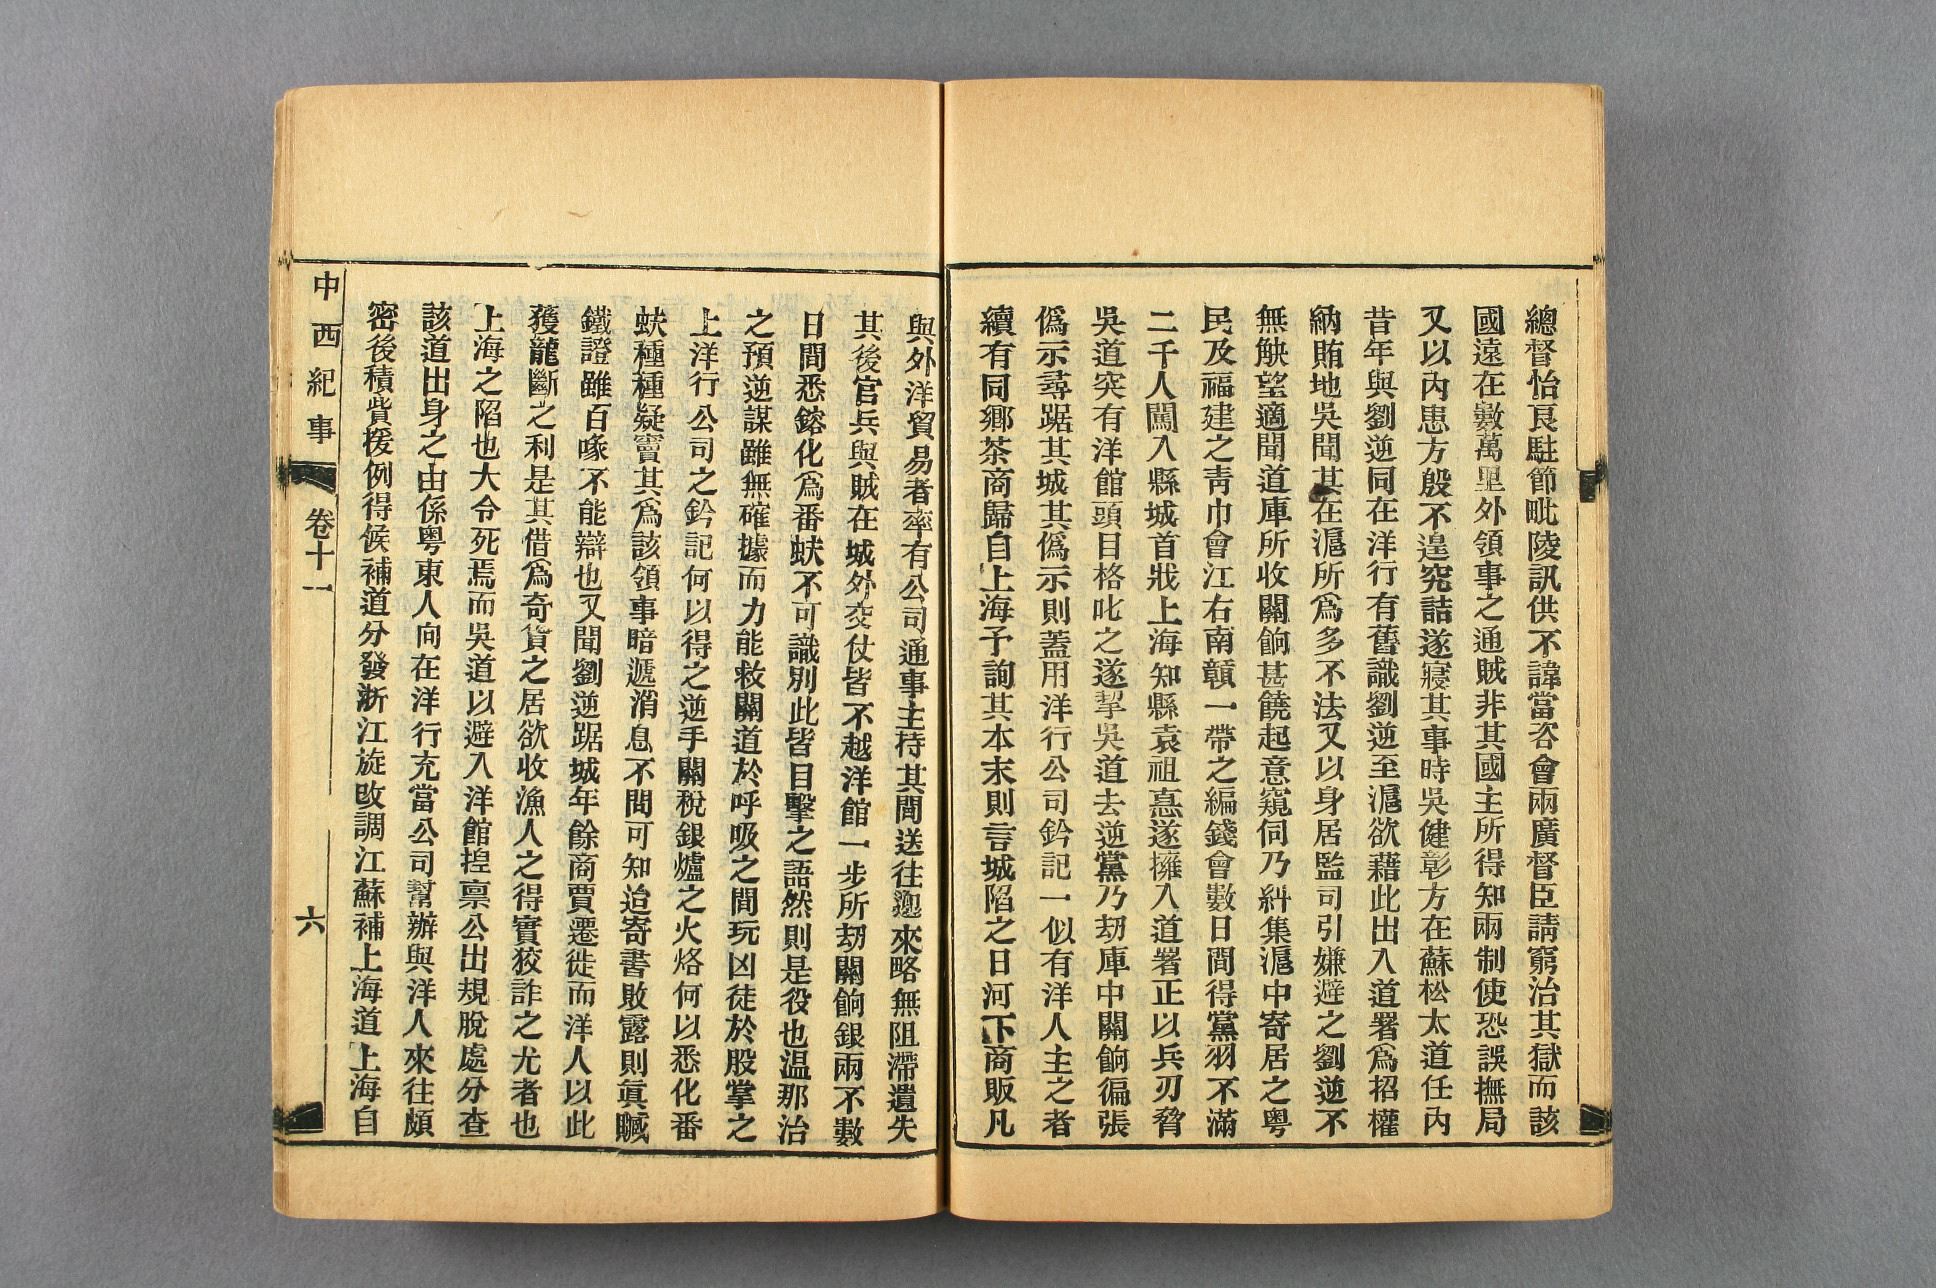 總督怡良駐節毗陵訊供不諱當咨會兩廣督臣請窮治其獄而該
國遠在數萬里外領事之通賊非其國主所得知兩制使恐誤撫局
又以內患方殷不遑究詰遂寢其事時吳健彰方在蘇松太道任內
昔年與劉逆同在洋行有舊識劉逆至滬欲藉此出入道署爲招權
納賄地吳聞其在滬所爲多不法又以身居監司引嫌避之劉逆不
無觖望適聞道庫所收關餉甚饒起意窺伺乃糾集滬中寄居之粤
民及福建之靑巾會江右南贛一帶之編錢會數日間得黨羽不滿
二千人闖入縣城首戕上海知縣袁祖惪遂擁入道署正以兵刃脅
吳道突有洋館頭目格叱之遂挈吳道去逆黨乃刧庫中關餉徧張
僞示尋踞其城其僞示則蓋用洋行公司鈐記一似有洋人主之者
續有同鄉茶商歸自上海予詢其本末則言城陷之日河下商販凡
與外洋貿易者率有公司通事主持其間送往迎來略無阻滯遺失
其後官兵與賊在城外交仗皆不越洋館一步所刧關餉銀兩不數
日間悉鎔化爲番蚨不可識別此皆目擊之語然則是役也溫那治
之預逆謀雖無確據而力能救關道於呼吸之間玩凶徒於股掌之
上洋行公司之鈐記何以得之逆手關稅銀爐之火烙何以悉化番
蚨種種疑竇其爲該領事暗遞消息不問可知迨寄書敗露則眞贓
鐵證雖百喙不能辯也又聞劉逆踞城年餘商賈遷徙而洋人以此
獲龍斷之利是其借爲奇貨之居欲收漁人之得實狡詐之尤者也
上海之陷也大令死焉而吳道以避入洋館揑禀公出規脫處分查
該道出身之由係粤東人向在洋行充當公司幫辦與洋人來往頗
密後積貲援例得候補道分發浙江旋改調江蘇補上海道上海自
中西紀事 卷十一 六